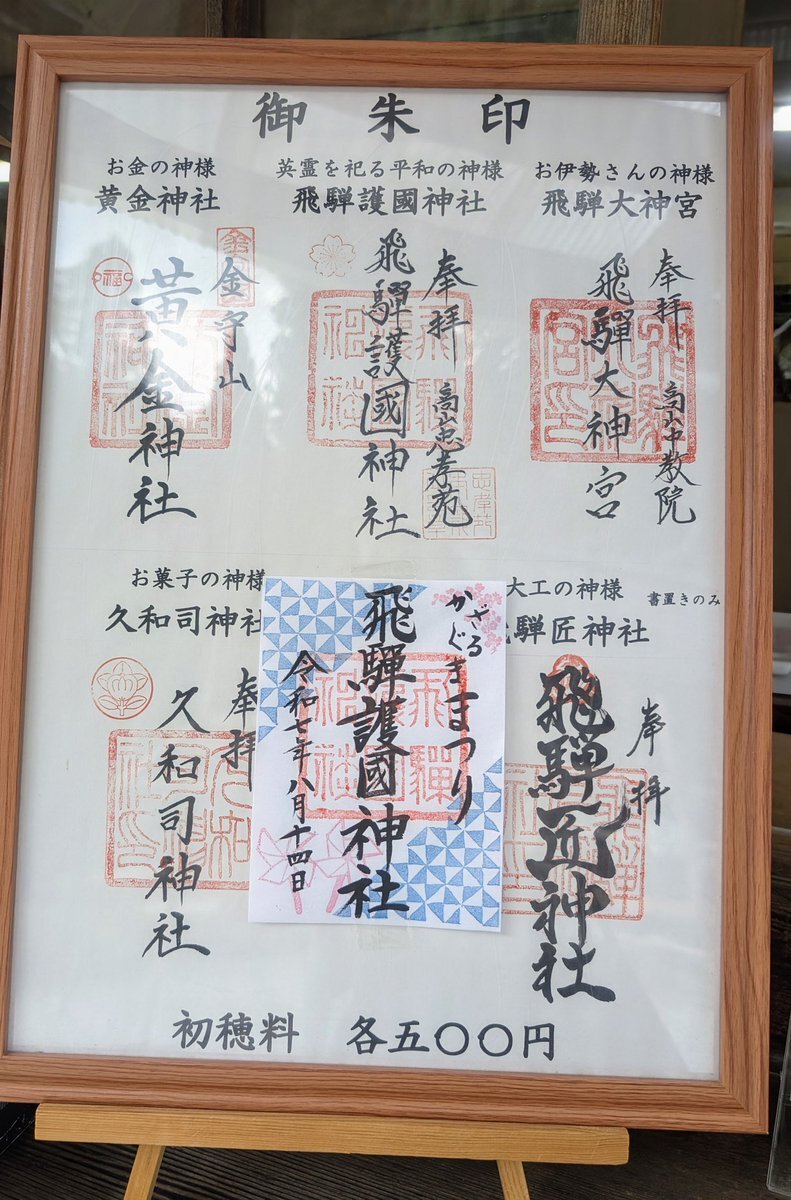 御朱印
お金の神様
黄金神社
英霊を祀る平和の神様
飛騨護國神社
お伊勢さんの神様
飛騨大神宮
金守山
黄金神社
奉拝
高山忠孝苑
飛騨護國神社
奉拝
高山中教院
飛騨大神宮
お菓子の神様
久和司神社
大工の神様
書置きのみ
騨匠神社
奉拝
久和司神社
かざぐるまつり
飛騨護國神社
令和七年八月十四日
奉拝
飛騨匠神社
初穂料 各五〇〇円